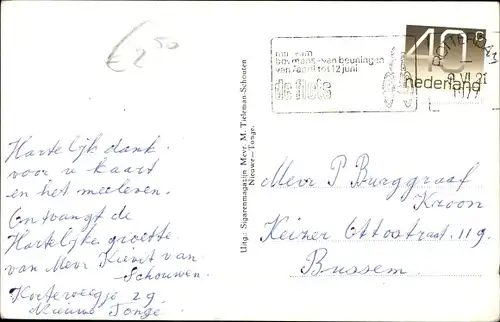 € 2,50
museum
boymans-van beuningen
van 7 april tot 12 juni
de fiets
ROTTERDAM
9 VI 21
1977
40c
nederland
Uitg.: Sigarenmagazijn Mevr. M. Tieleman-Schouten
Nieuwe-Tonge.
Hartelijk dank
voor u kaart
en het meeleven.
Ontvangt de
Hartelijke groette
van Mevr Kievit van
-Schouwen.
Korteweegje 29
Nieuwe Tonge
Mevr P Burggraaf
Kroon
Keizer Ottostraat. 119.
Bussem.